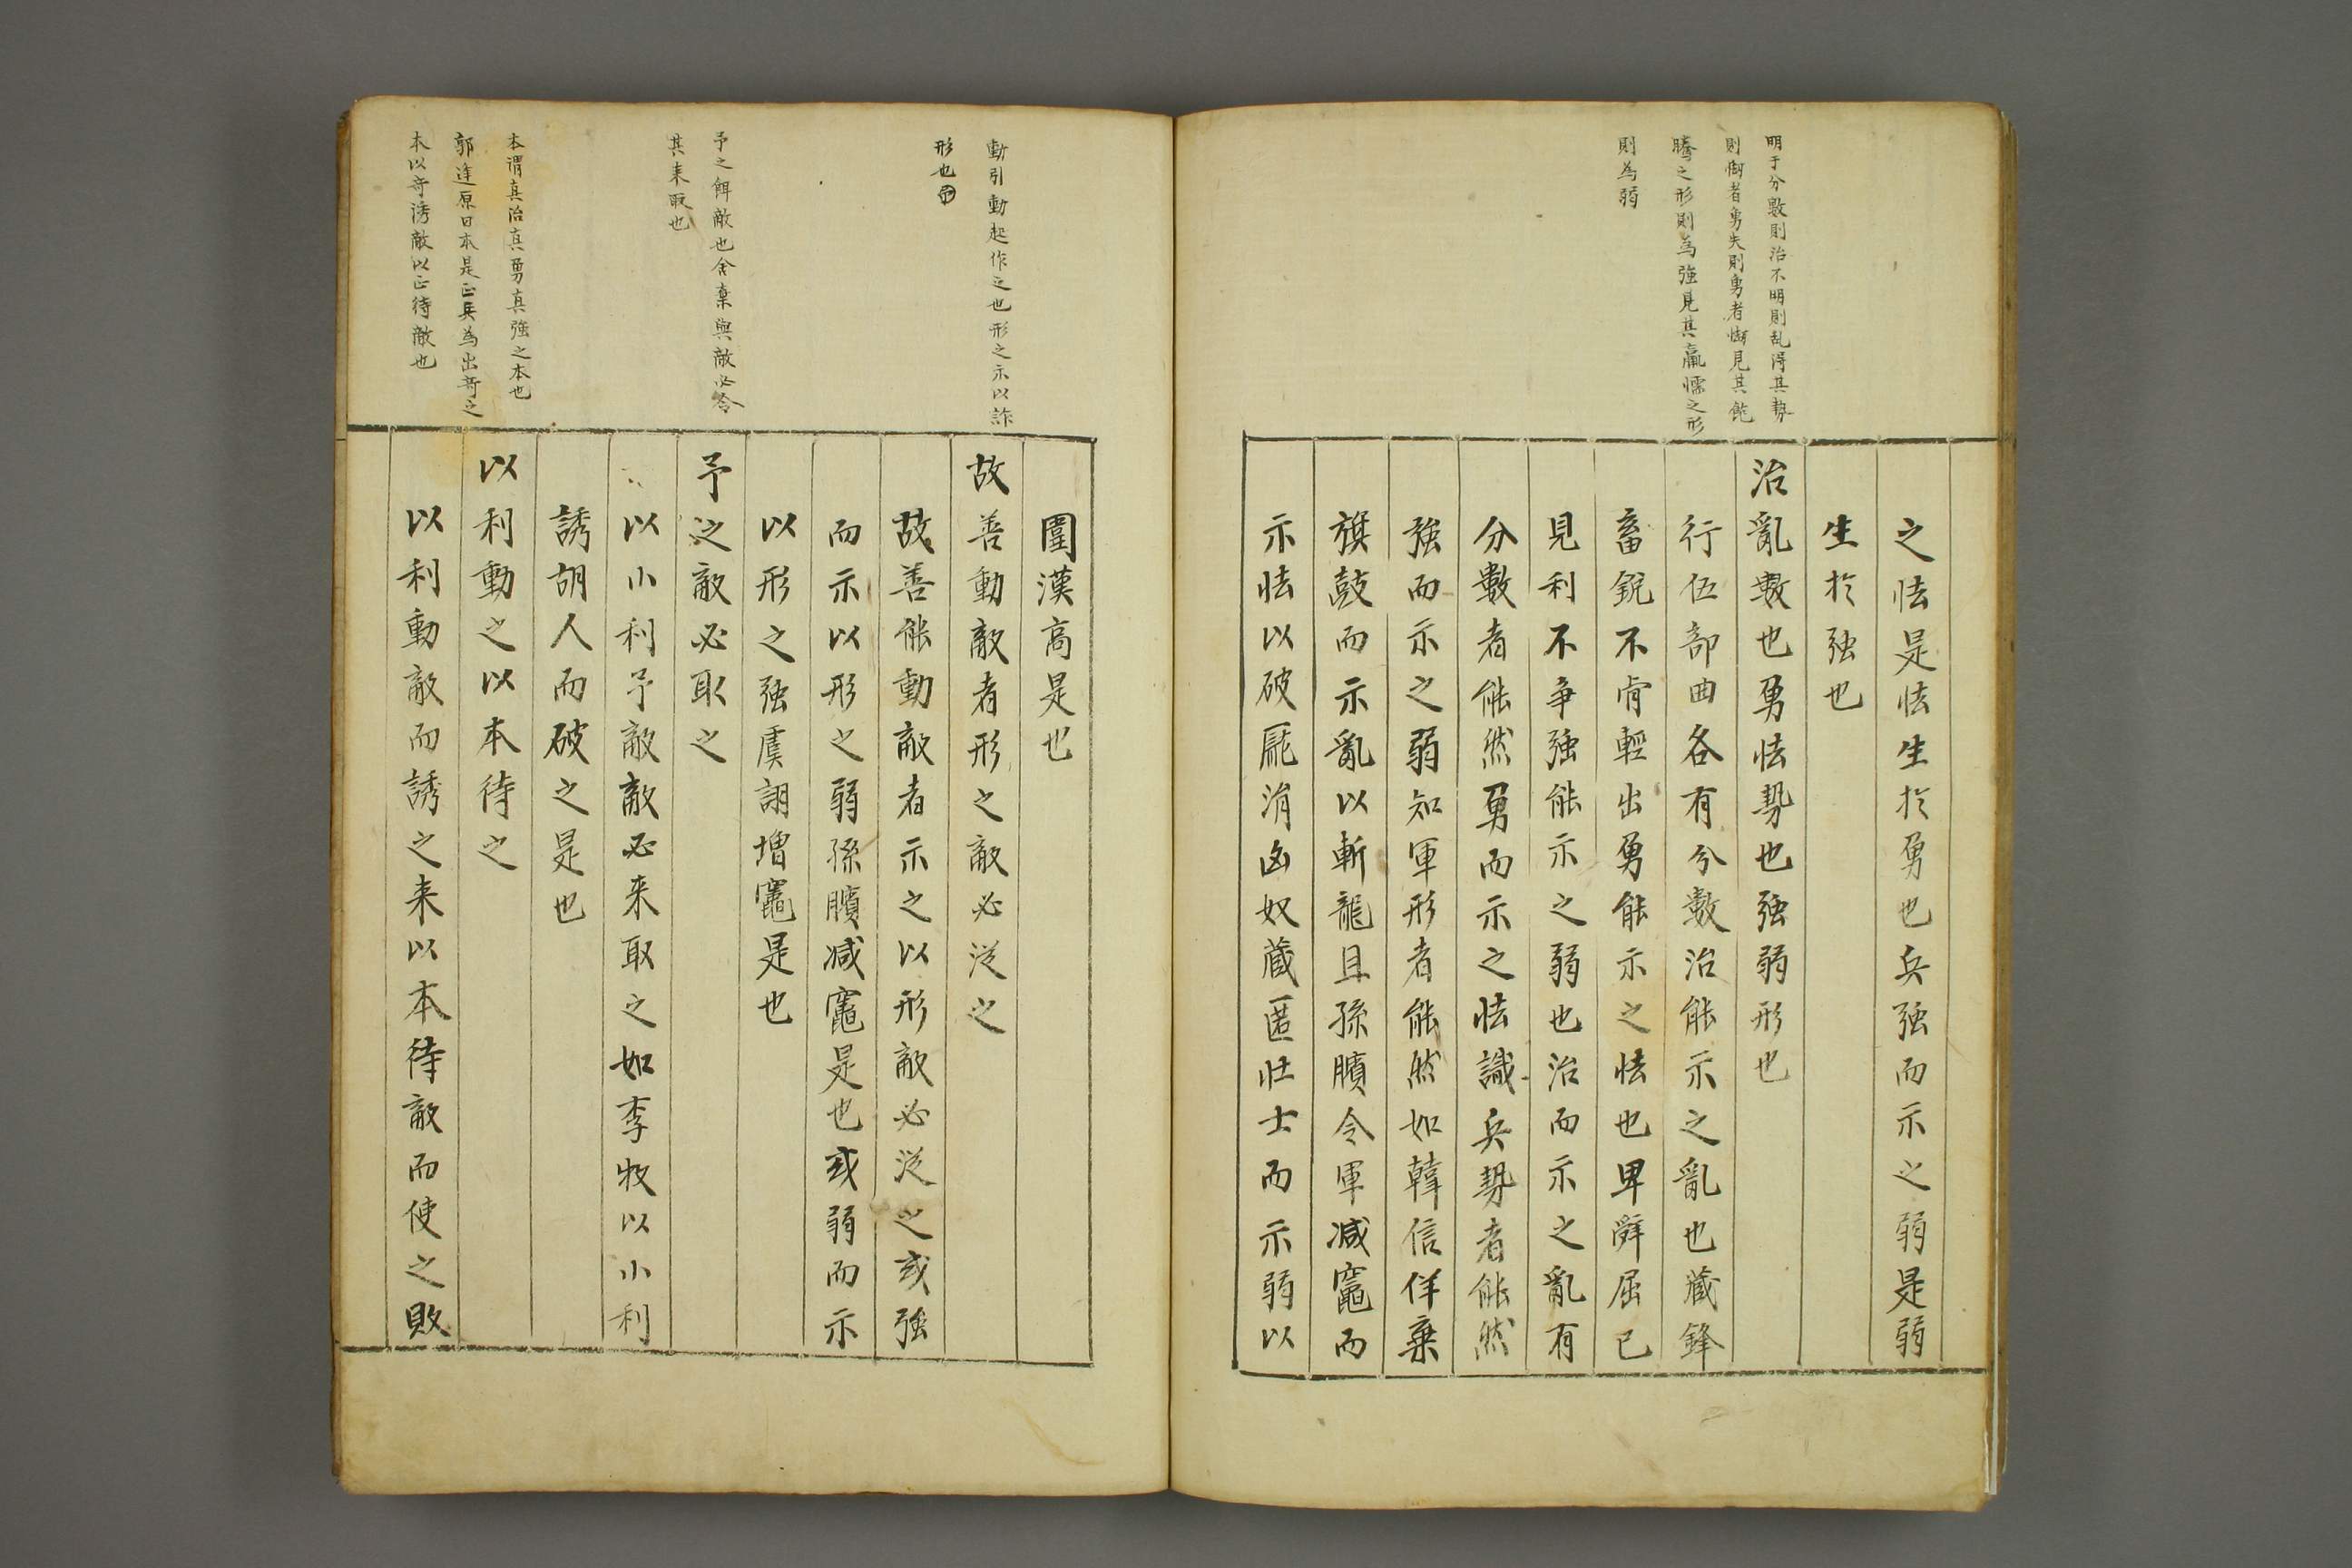 明于分數則治不明則乱得其勢
則懦者勇失則勇者懦見其飽
騰之形則為強見其羸懦之形
則為弱
之怯是怯生於勇也兵强而示之弱是弱
生於强也
治亂數也勇怯勢也强弱形也
行伍部曲各有分數治能示之亂也藏鋒
畜銳不肯輕出勇能示之怯也卑辭屈己
見利不争强能示之弱也治而示之亂有
分數者能然勇而示之怯識兵勢者能然
強而示之弱知軍形者能然如韓信佯棄
旗鼓而示亂以斬龍且孫臏令軍减竈而
示怯以破龎涓凶奴蔵匿壮士而示弱以
動引動起作之也形之示以詐
形也
予之餌敵也舍棄與敵必令
其来取也
本謂真治真勇真強之本也
郭逢原曰本是正兵為出奇之
本以奇誘敵以正待敵也
圍漢高是也
故善動敵者形之敵必從之
故善能動敵者示之以形敵必從之或強
而示以形之弱孫臏减竈是也或弱而示
以形之强虞詡增竈是也
予之敵必取之
以小利予敵敵必来取之如李牧以小利
誘胡人而破之是也
以利動之以本待之
以利動敵而誘之来以本待敵而使之敗